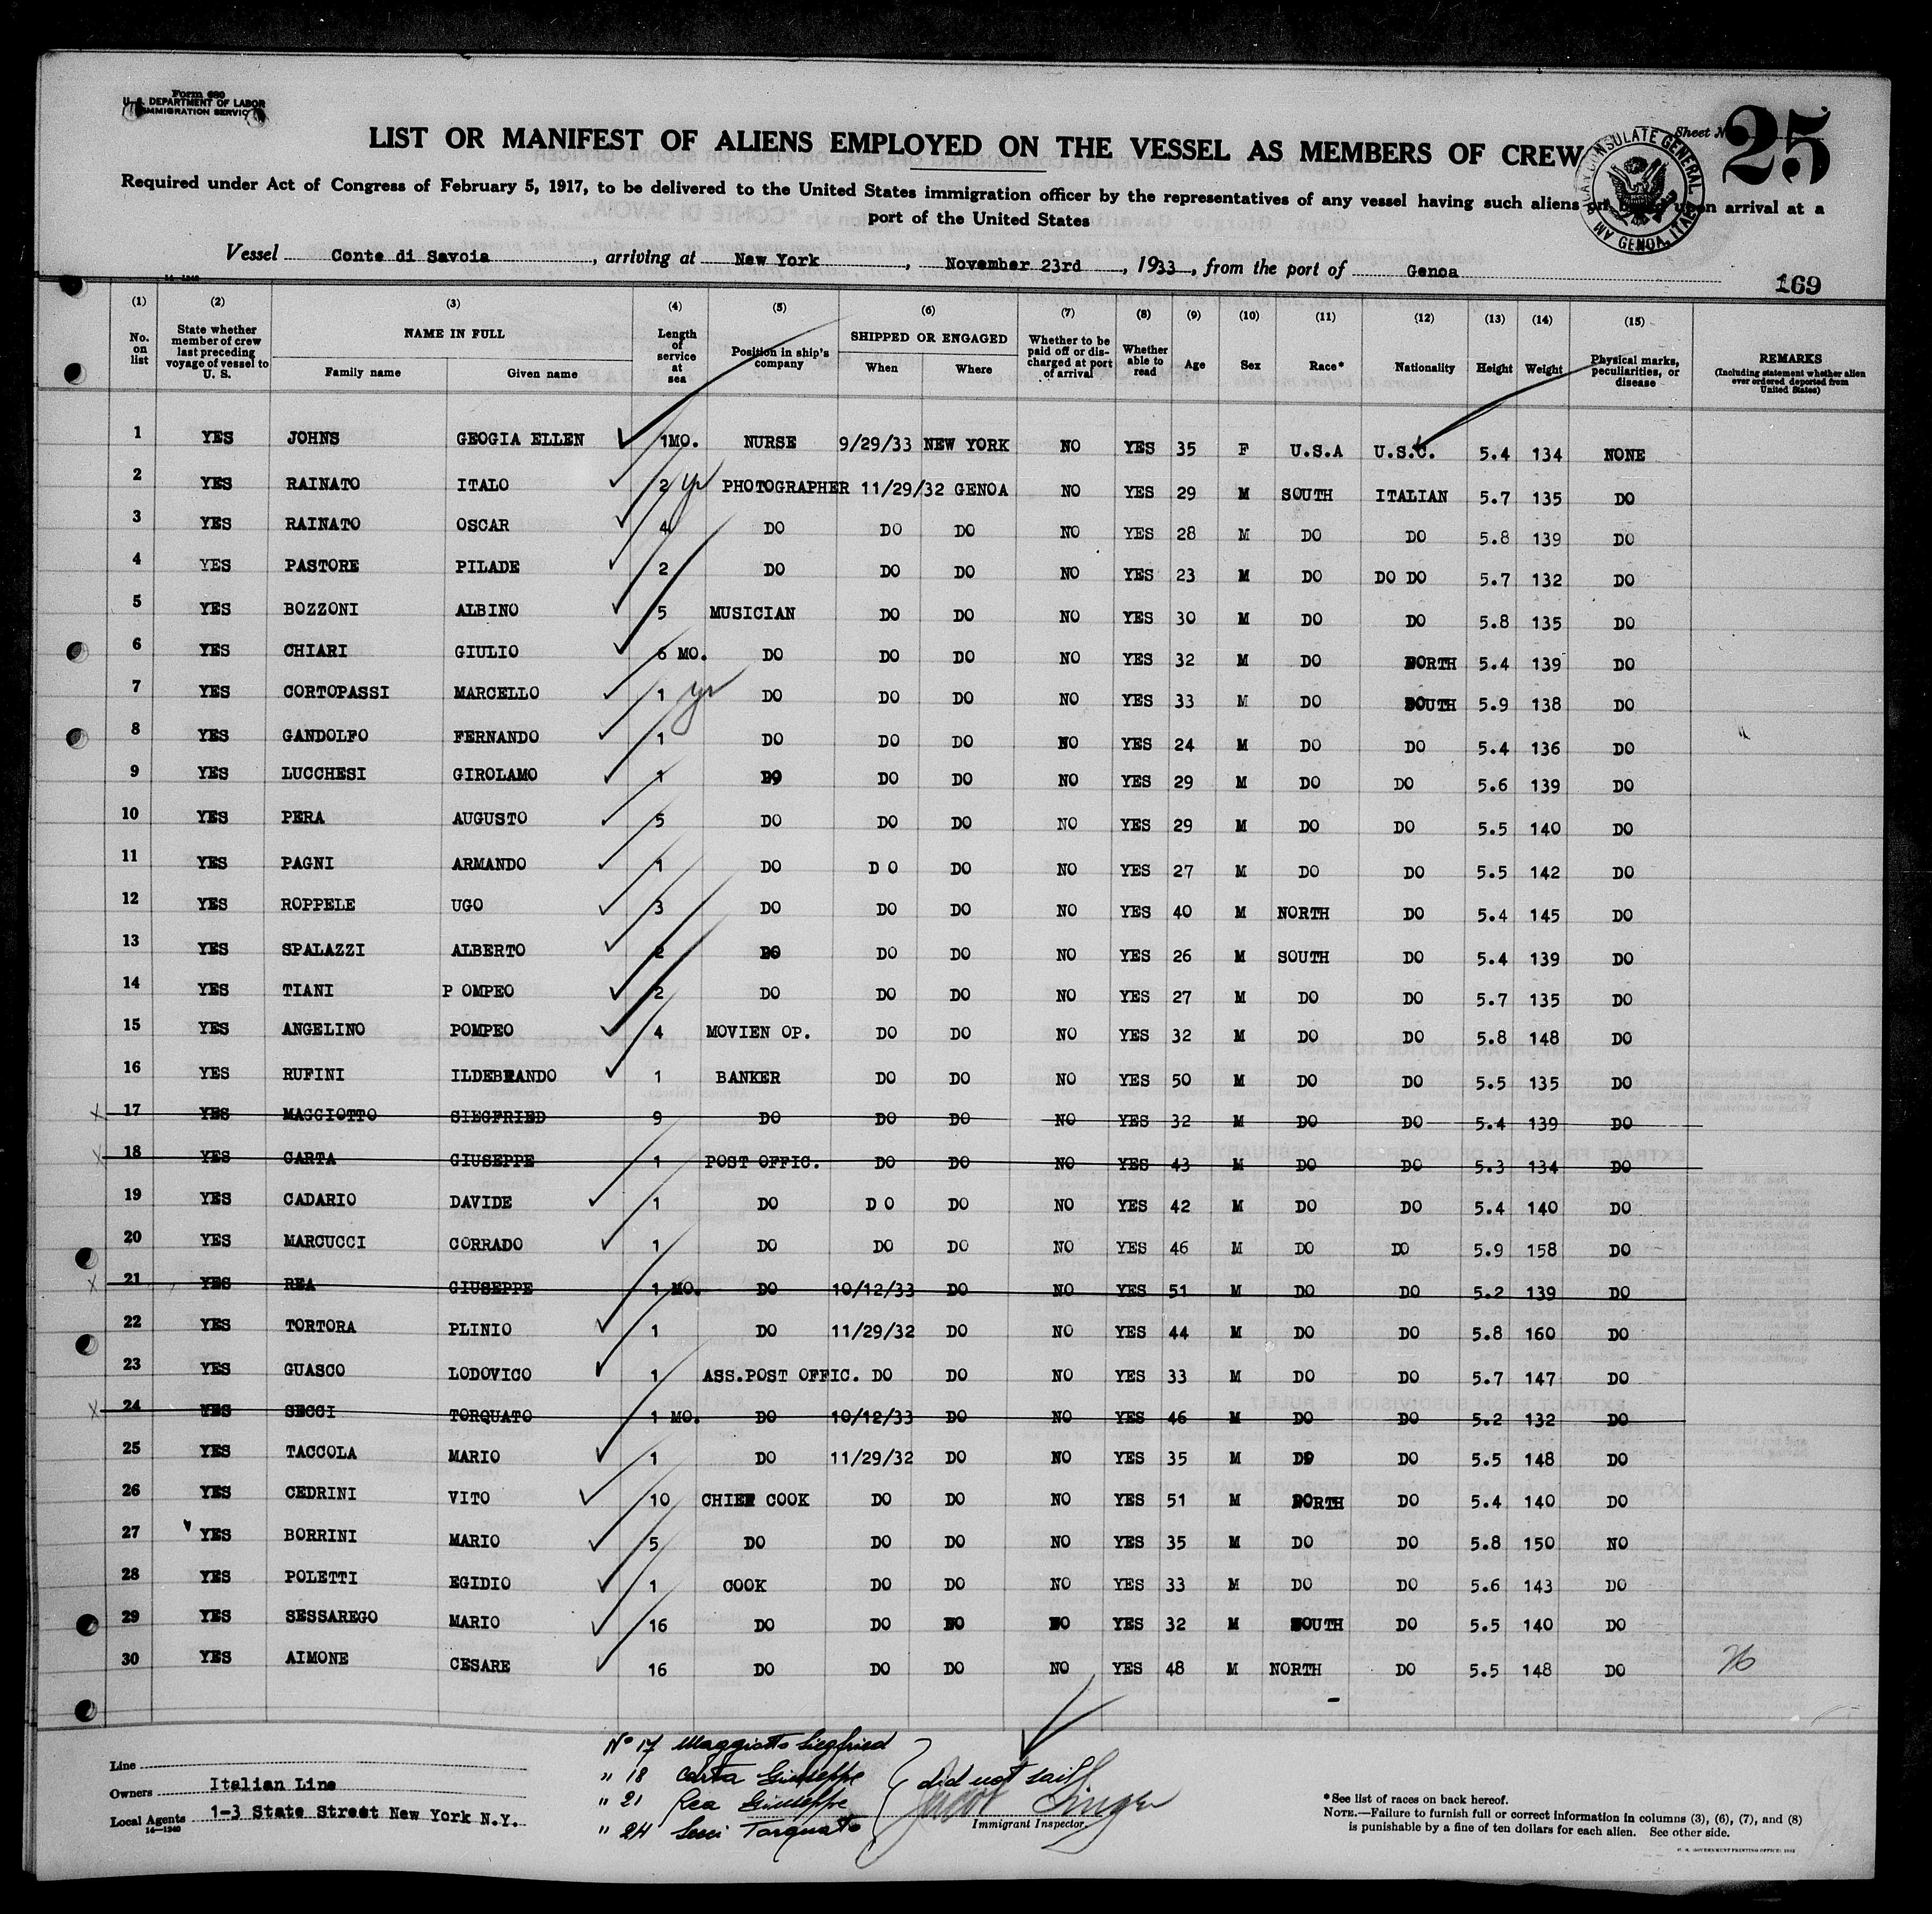 Form 680
U. S. DEPARTMENT OF LABOR
IMMIGRATION SERVICE
Sheet No. 25
LIST OR MANIFEST OF ALIENS EMPLOYED ON THE VESSEL AS MEMBERS OF CREW
AMERICAN CONSULATE GENERAL GENOA, ITALY
Required under Act of Congress of February 5, 1917, to be delivered to the United States immigration officer by the representatives of any vessel having such aliens on board upon arrival at a
port of the United States
Vessel Conte di Savoia, arriving at New York, November 23rd, 1933, from the port of Genoa
14-1240
169
(1) (2) (3) (4) (5) (6) (7) (8) (9) (10) (11) (12) (13) (14) (15)
No. on list | State whether member of crew last preceding voyage of vessel to U. S. | NAME IN FULL Family name Given name | Length of service at sea | Position in ship's company | SHIPPED OR ENGAGED When Where | Whether to be paid off or discharged at port of arrival | Whether able to read | Age | Sex | Race* | Nationality | Height | Weight | Physical marks, peculiarities, or disease | REMARKS (Including statement whether alien ever ordered deported from United States)
1 YES JOHNS GEOGIA ELLEN 1MO. NURSE 9/29/33 NEW YORK NO YES 35 F U.S.A U.S.C. 5.4 134 NONE
2 YES RAINATO ITALO 2 yr PHOTOGRAPHER 11/29/32 GENOA NO YES 29 M SOUTH ITALIAN 5.7 135 DO
3 YES RAINATO OSCAR 4 DO DO DO NO YES 28 M DO DO 5.8 139 DO
4 YES PASTORE PILADE 2 DO DO DO NO YES 23 M DO DO DO 5.7 132 DO
5 YES BOZZONI ALBINO 5 MUSICIAN DO DO NO YES 30 M DO DO 5.8 135 DO
6 YES CHIARI GIULIO 6 MO. DO DO DO NO YES 32 M DO NORTH 5.4 139 DO
7 YES CORTOPASSI MARCELLO 1 yr DO DO DO NO YES 33 M DO SOUTH 5.9 138 DO
8 YES GANDOLFO FERNANDO 1 DO DO DO NO YES 24 M DO DO 5.4 136 DO
9 YES LUCCHESI GIROLAMO 1 DO DO DO NO YES 29 M DO DO 5.6 139 DO
10 YES PERA AUGUSTO 5 DO DO DO NO YES 29 M DO DO 5.5 140 DO
11 YES PAGNI ARMANDO 1 DO D O DO NO YES 27 M DO DO 5.5 142 DO
12 YES ROPPELE UGO 3 DO DO DO NO YES 40 M NORTH DO 5.4 145 DO
13 YES SPALAZZI ALBERTO 2 DO DO DO NO YES 26 M SOUTH DO 5.4 139 DO
14 YES TIANI P OMPEO 2 DO DO DO NO YES 27 M DO DO 5.7 135 DO
15 YES ANGELINO POMPEO 4 MOVIEN OP. DO DO NO YES 32 M DO DO 5.8 148 DO
16 YES RUFINI ILDEBRANDO 1 BANKER DO DO NO YES 50 M DO DO 5.5 135 DO
17 YES MAGGIOTTO SIEGFRIED 9 DO DO DO NO YES 32 M DO DO 5.4 139 DO
18 YES CARTA GIUSEPPE 1 POST OFFIC. DO DO NO YES 43 M DO DO 5.3 134 DO
19 YES CADARIO DAVIDE 1 DO D O DO NO YES 42 M DO DO 5.4 140 DO
20 YES MARCUCCI CORRADO 1 DO DO DO NO YES 46 M DO DO 5.9 158 DO
21 YES REA GIUSEPPE 1 MO. DO 10/12/33 DO NO YES 51 M DO DO 5.2 139 DO
22 YES TORTORA PLINIO 1 DO 11/29/32 DO NO YES 44 M DO DO 5.8 160 DO
23 YES GUASCO LODOVICO 1 ASS.POST OFFIC. DO DO NO YES 33 M DO DO 5.7 147 DO
24 YES SECCI TORQUATO 1 MO. DO 10/12/33 DO NO YES 46 M DO DO 5.2 132 DO
25 YES TACCOLA MARIO 1 DO 11/29/32 DO NO YES 35 M DO DO 5.5 148 DO
26 YES CEDRINI VITO 10 CHIEF COOK DO DO NO YES 51 M NORTH DO 5.4 140 DO
27 YES BORRINI MARIO 5 DO DO DO NO YES 35 M DO DO 5.8 150 NO
28 YES POLETTI EGIDIO 1 COOK DO DO NO YES 33 M DO DO 5.6 143 DO
29 YES SESSAREGO MARIO 16 DO DO NO NO YES 32 M SOUTH DO 5.5 140 DO
30 YES AIMONE CESARE 16 DO DO DO NO YES 48 M NORTH DO 5.5 148 DO 26
No 17 Maggiotto Siegfried
" 18 Carta Giuseppe
" 21 Rea Giuseppe
" 24 Secci Torquato
did not sail
Jacob Singer
Immigrant Inspector
Line
Owners Italian Line
Local Agents 1-3 State Street New York N.Y.
14-1240
*See list of races on back hereof.
NOTE.—Failure to furnish full or correct information in columns (3), (6), (7), and (8)
is punishable by a fine of ten dollars for each alien. See other side.
U. S. GOVERNMENT PRINTING OFFICE: 1932